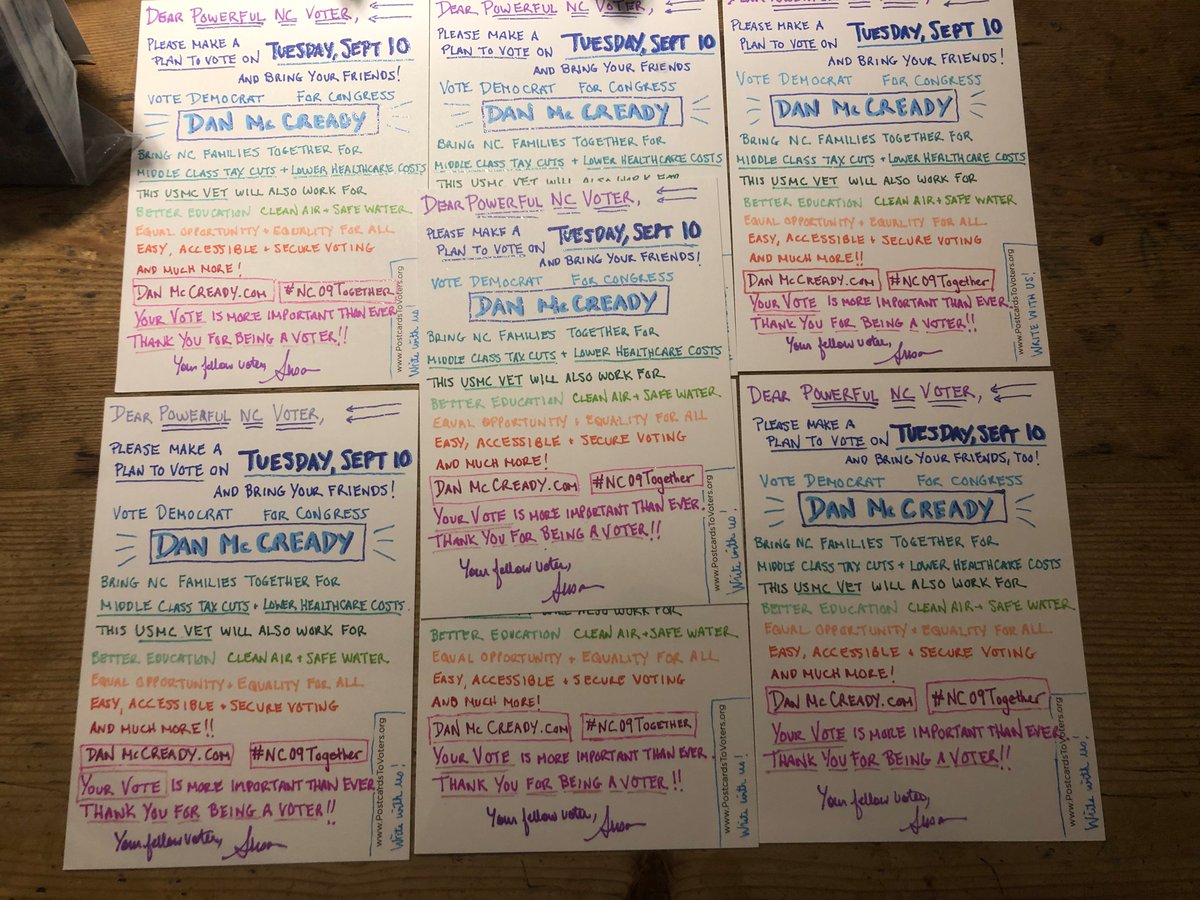 DEAR POWERFUL NC VOTER,
PLEASE MAKE A
PLAN TO VOTE ON TUESDAY, SEPT 10
AND BRING YOUR FRIENDS!
VOTE DEMOCRAT FOR CONGRESS
DAN McCREADY
BRING NC FAMILIES TOGETHER FOR
MIDDLE CLASS TAX CUTS + LOWER HEALTHCARE COSTS
THIS USMC VET WILL ALSO WORK FOR
BETTER EDUCATION CLEAN AIR + SAFE WATER
EQUAL OPPORTUNITY + EQUALITY FOR ALL
EASY, ACCESSIBLE + SECURE VOTING
AND MUCH MORE!
DAN McCREADY.COM #NC09TOGETHER
YOUR VOTE IS MORE IMPORTANT THAN EVER
THANK YOU FOR BEING A VOTER!!
Your fellow voter, Susan
www.PostcardsToVoters.org
Write with us!
DEAR POWERFUL NC VOTER,
PLEASE MAKE A
PLAN TO VOTE ON TUESDAY, SEPT 10
AND BRING YOUR FRIENDS
VOTE DEMOCRAT FOR CONGRESS
DAN McCREADY
BRING NC FAMILIES TOGETHER FOR
MIDDLE CLASS TAX CUTS + LOWER HEALTHCARE COSTS
THIS USMC VET WILL ALSO WORK FOR
DEAR POWERFUL NC VOTER,
PLEASE MAKE A
PLAN TO VOTE ON TUESDAY, SEPT 10
AND BRING YOUR FRIENDS!
VOTE DEMOCRAT FOR CONGRESS
DAN McCREADY
BRING NC FAMILIES TOGETHER FOR
MIDDLE CLASS TAX CUTS + LOWER HEALTHCARE COSTS
THIS USMC VET WILL ALSO WORK FOR
BETTER EDUCATION CLEAN AIR + SAFE WATER
EQUAL OPPORTUNITY + EQUALITY FOR ALL
EASY, ACCESSIBLE + SECURE VOTING
AND MUCH MORE!!
DAN McCREADY.COM #NC09TOGETHER!
YOUR VOTE IS MORE IMPORTANT THAN EVER
THANK YOU FOR BEING A VOTER!!
Your fellow voter, Susan
www.PostcardsToVoters.org
WRITE WITH US!
DEAR POWERFUL NC VOTER,
PLEASE MAKE A
PLAN TO VOTE ON TUESDAY, SEPT 10
AND BRING YOUR FRIENDS!
VOTE DEMOCRAT FOR CONGRESS
DAN McCREADY
BRING NC FAMILIES TOGETHER FOR
MIDDLE CLASS TAX CUTS + LOWER HEALTHCARE COSTS
THIS USMC VET WILL ALSO WORK FOR
BETTER EDUCATION CLEAN AIR + SAFE WATER.
EQUAL OPPORTUNITY + EQUALITY FOR ALL
EASY, ACCESSIBLE + SECURE VOTING
AND MUCH MORE!
DAN McCREADY.COM #NC09Together
YOUR VOTE IS MORE IMPORTANT THAN EVER.
THANK YOU FOR BEING A VOTER!!
Your fellow voter,
Susan
www.PostcardsToVoters.org
Write with us!
DEAR POWERFUL NC VOTER,
PLEASE MAKE A
PLAN TO VOTE ON TUESDAY, SEPT 10
AND BRING YOUR FRIENDS!
VOTE DEMOCRAT FOR CONGRESS
DAN McCREADY
BRING NC FAMILIES TOGETHER FOR
MIDDLE CLASS TAX CUTS + LOWER HEALTHCARE COSTS.
THIS USMC VET WILL ALSO WORK FOR
BETTER EDUCATION CLEAN AIR + SAFE WATER.
EQUAL OPPORTUNITY + EQUALITY FOR ALL
EASY, ACCESSIBLE + SECURE VOTING
AND MUCH MORE!!
DAN McCREADY.COM #NC09Together
YOUR VOTE IS MORE IMPORTANT THAN EVER
THANK YOU FOR BEING A VOTER!!
Your fellow voter, Susan
www.PostcardsToVoters.org
Write with us!
WILL ALSO WORK FOR
BETTER EDUCATION CLEAN AIR + SAFE WATER.
EQUAL OPPORTUNITY + EQUALITY FOR ALL
EASY, ACCESSIBLE + SECURE VOTING
AND MUCH MORE!
DAN McCREADY.COM #NC09TOGETHER
YOUR VOTE IS MORE IMPORTANT THAN EVER.
THANK YOU FOR BEING A VOTER!!
Your fellow voter, Susan
www.PostcardsToVoters.org
Write with us!
DEAR POWERFUL NC VOTER,
PLEASE MAKE A
PLAN TO VOTE ON TUESDAY, SEPT 10
AND BRING YOUR FRIENDS, TOO!
VOTE DEMOCRAT FOR CONGRESS
DAN McCREADY
BRING NC FAMILIES TOGETHER FOR
MIDDLE CLASS TAX CUTS + LOWER HEALTHCARE COSTS
THIS USMC VET WILL ALSO WORK FOR
BETTER EDUCATION CLEAN AIR + SAFE WATER.
EQUAL OPPORTUNITY + EQUALITY FOR ALL.
EASY, ACCESSIBLE + SECURE VOTING
AND MUCH MORE!
DAN McCREADY.COM #NC09Together
YOUR VOTE IS MORE IMPORTANT THAN EVER
THANK YOU FOR BEING A VOTER!!
Your fellow voter,
Susan
www.PostcardsToVoters.org
Write with us!